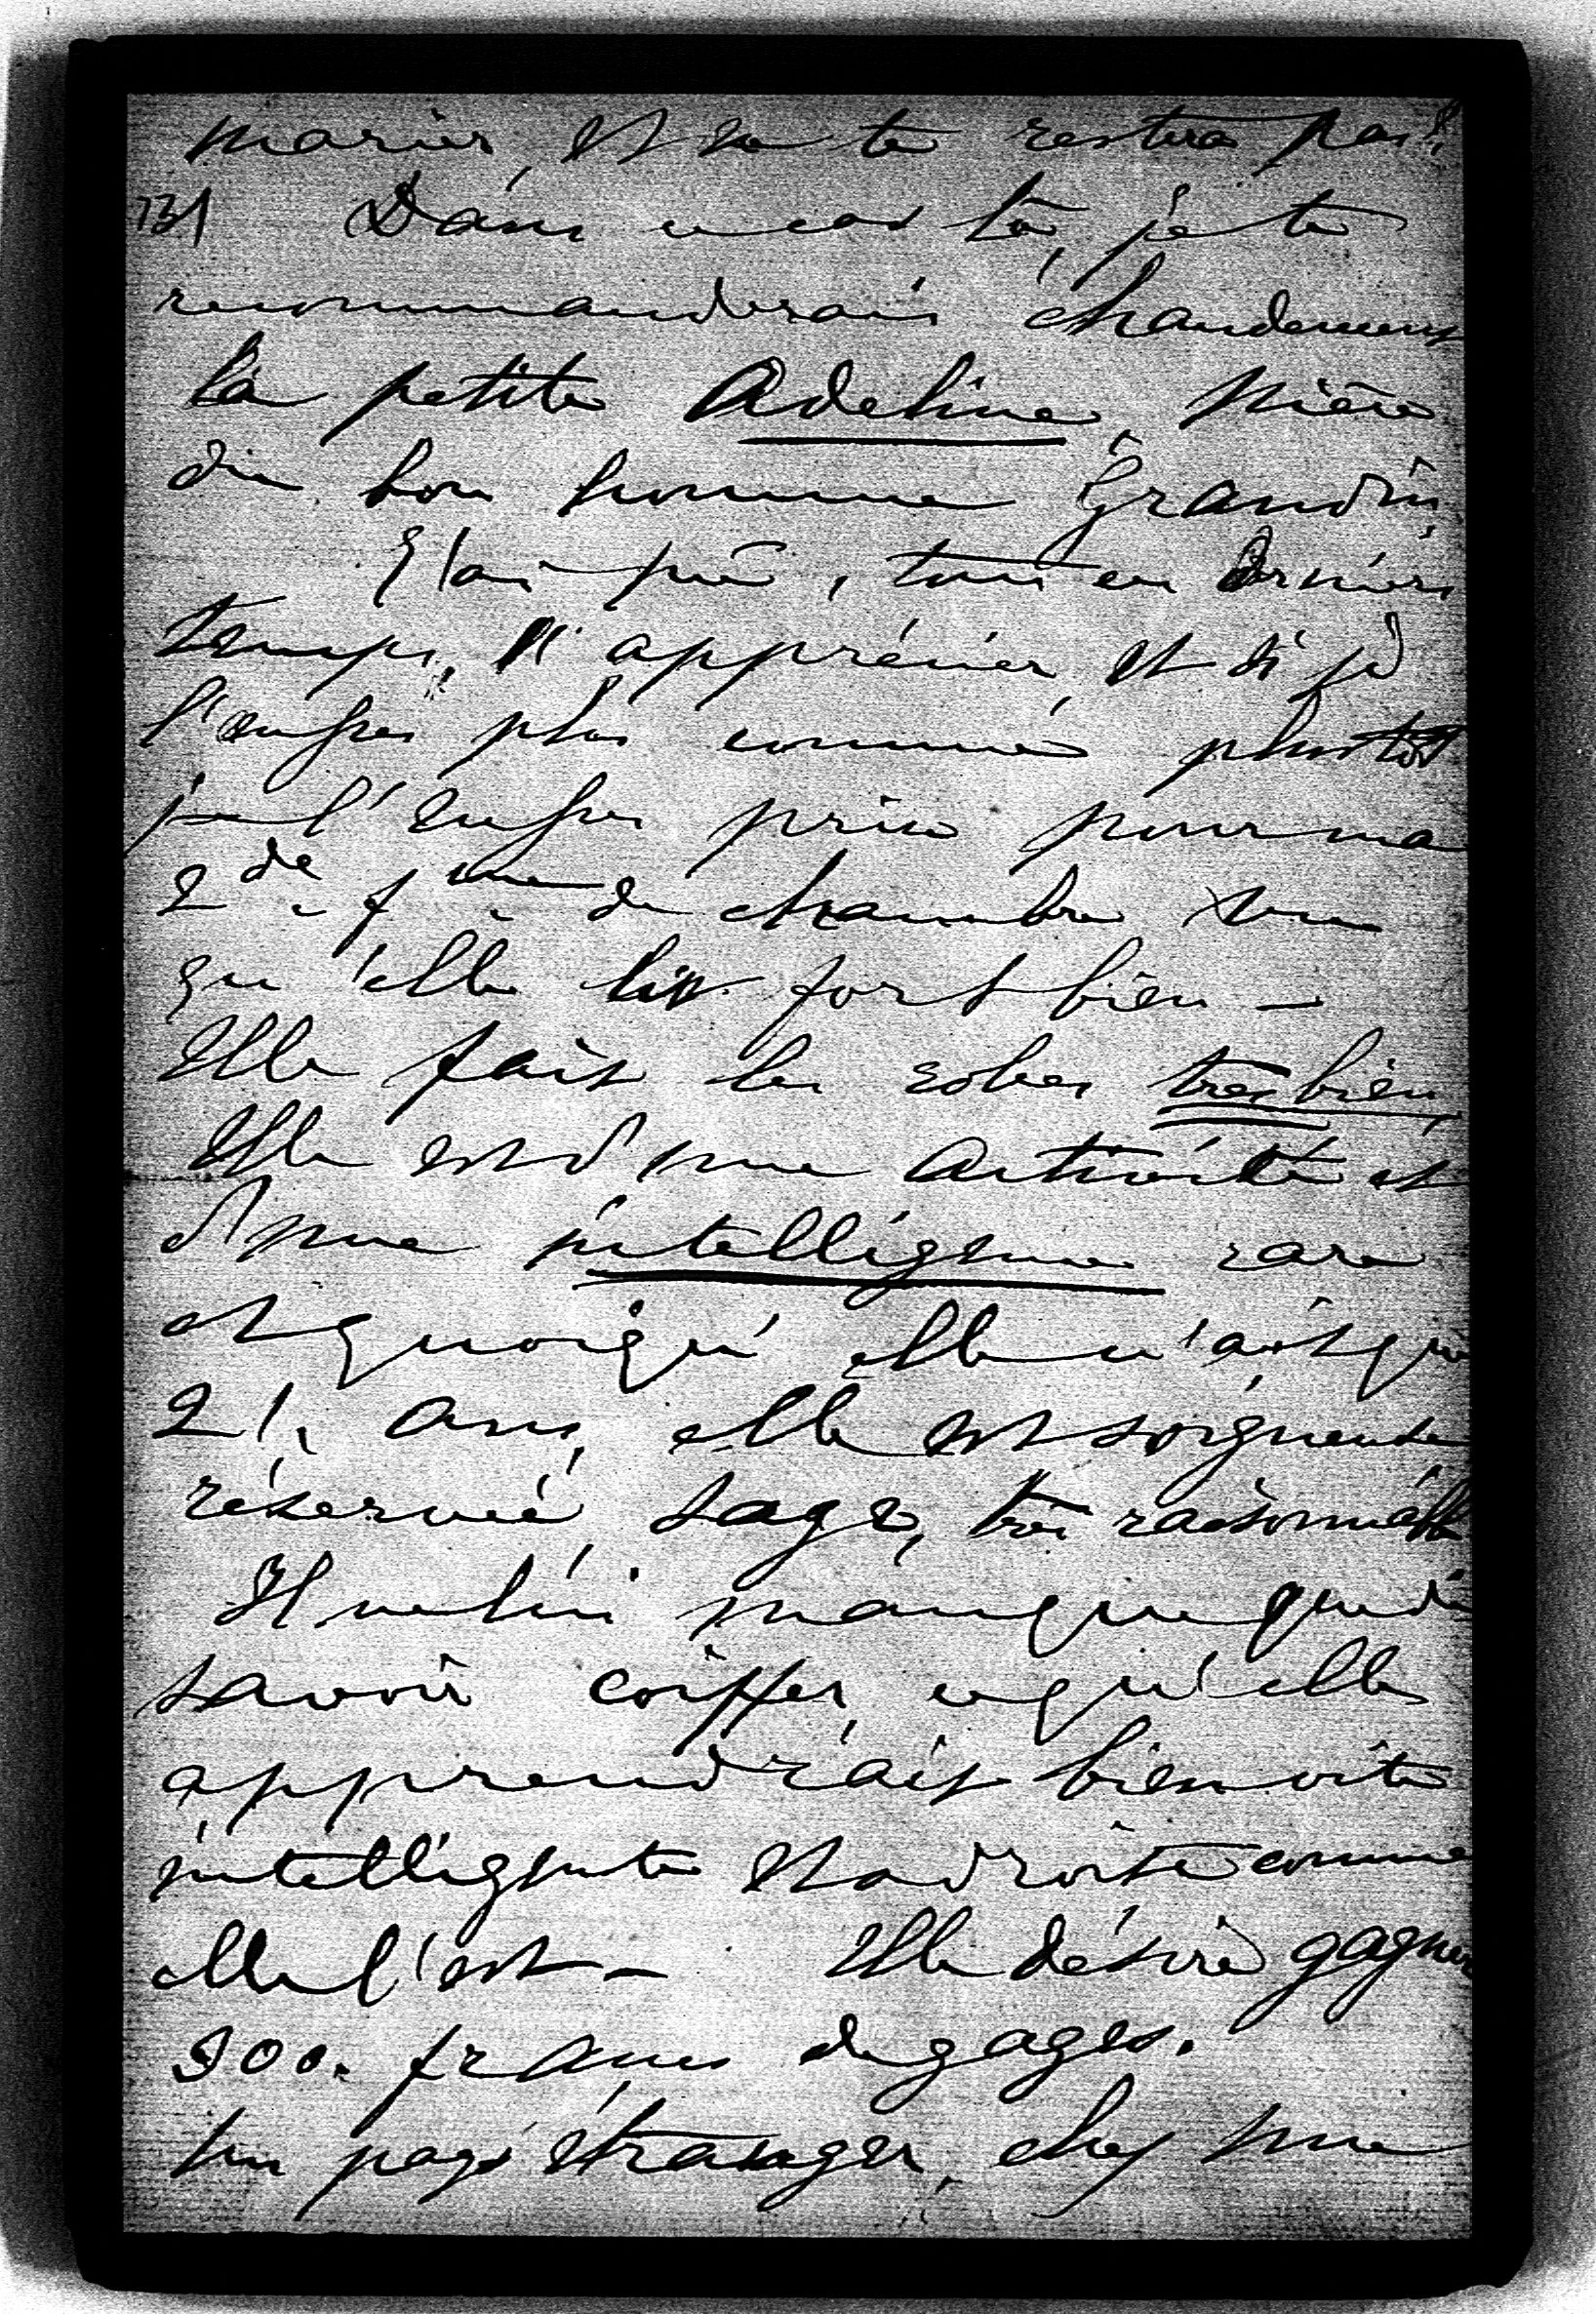 marier, et ne te restera pas!
731 Dans ce cas là, je te
recommanderais chaudement
la petite Adeline, nièce
du bon homme Grandin,
J'ai pu, tous ces derniers
temps, l'apprécier, et si je
l'eusse plus connue plus tôt
je l'eusse prise pour ma
2de fme de chambre vu
qu'elle lit fort bien –
Elle fait les robes très bien,
Elle est d'une activité et
d'une intelligence rare
et quoiqu'elle n'ait que
21. ans, elle est soigneuse
réservée, sage, très raisonnable
Il ne lui manque que de
savoir coiffer, ce qu'elle
apprendrait bien vite
intelligente et adroite comme
elle l'est – Elle désire gagner
900. francs de gages.
En pays étranger, chez une